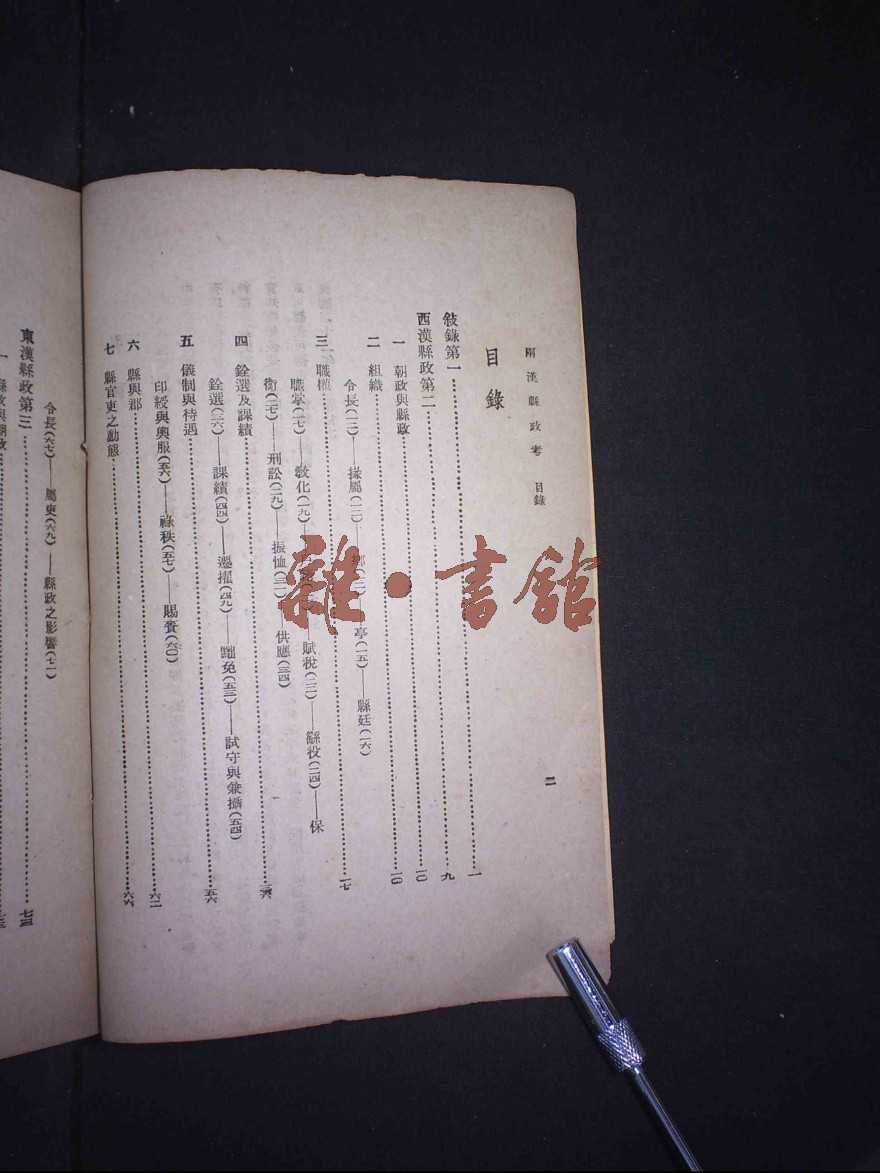 兩漢縣政考 目錄
二
目錄
敍錄第一……一
西漢縣政第二……九
一 朝政與縣政……一〇
二 組織……一〇
令長(一二)——掾屬(一三)——亭(一五)——縣廷(一六)
三 職權……一七
職掌(一七)——敎化(一九)——賦稅(二三)——繇役(二四)——保
衛(二七)——刑訟(二九)——振恤(三一)——供應(三四)
四 銓選及課績……三六
銓選(三六)——課績(四四)——遷擢(四九)——黜免(五三)——試守與兼攝(五四)
五 儀制與待遇……五六
印綬與輿服(五六)——祿秩(五七)——賜賚(六〇)
六 縣與郡……六二
七 縣官吏之動態……六六
令長(六七)——屬吏(六九)——縣政之影響(七一)
東漢縣政第三……七三
雜·書館